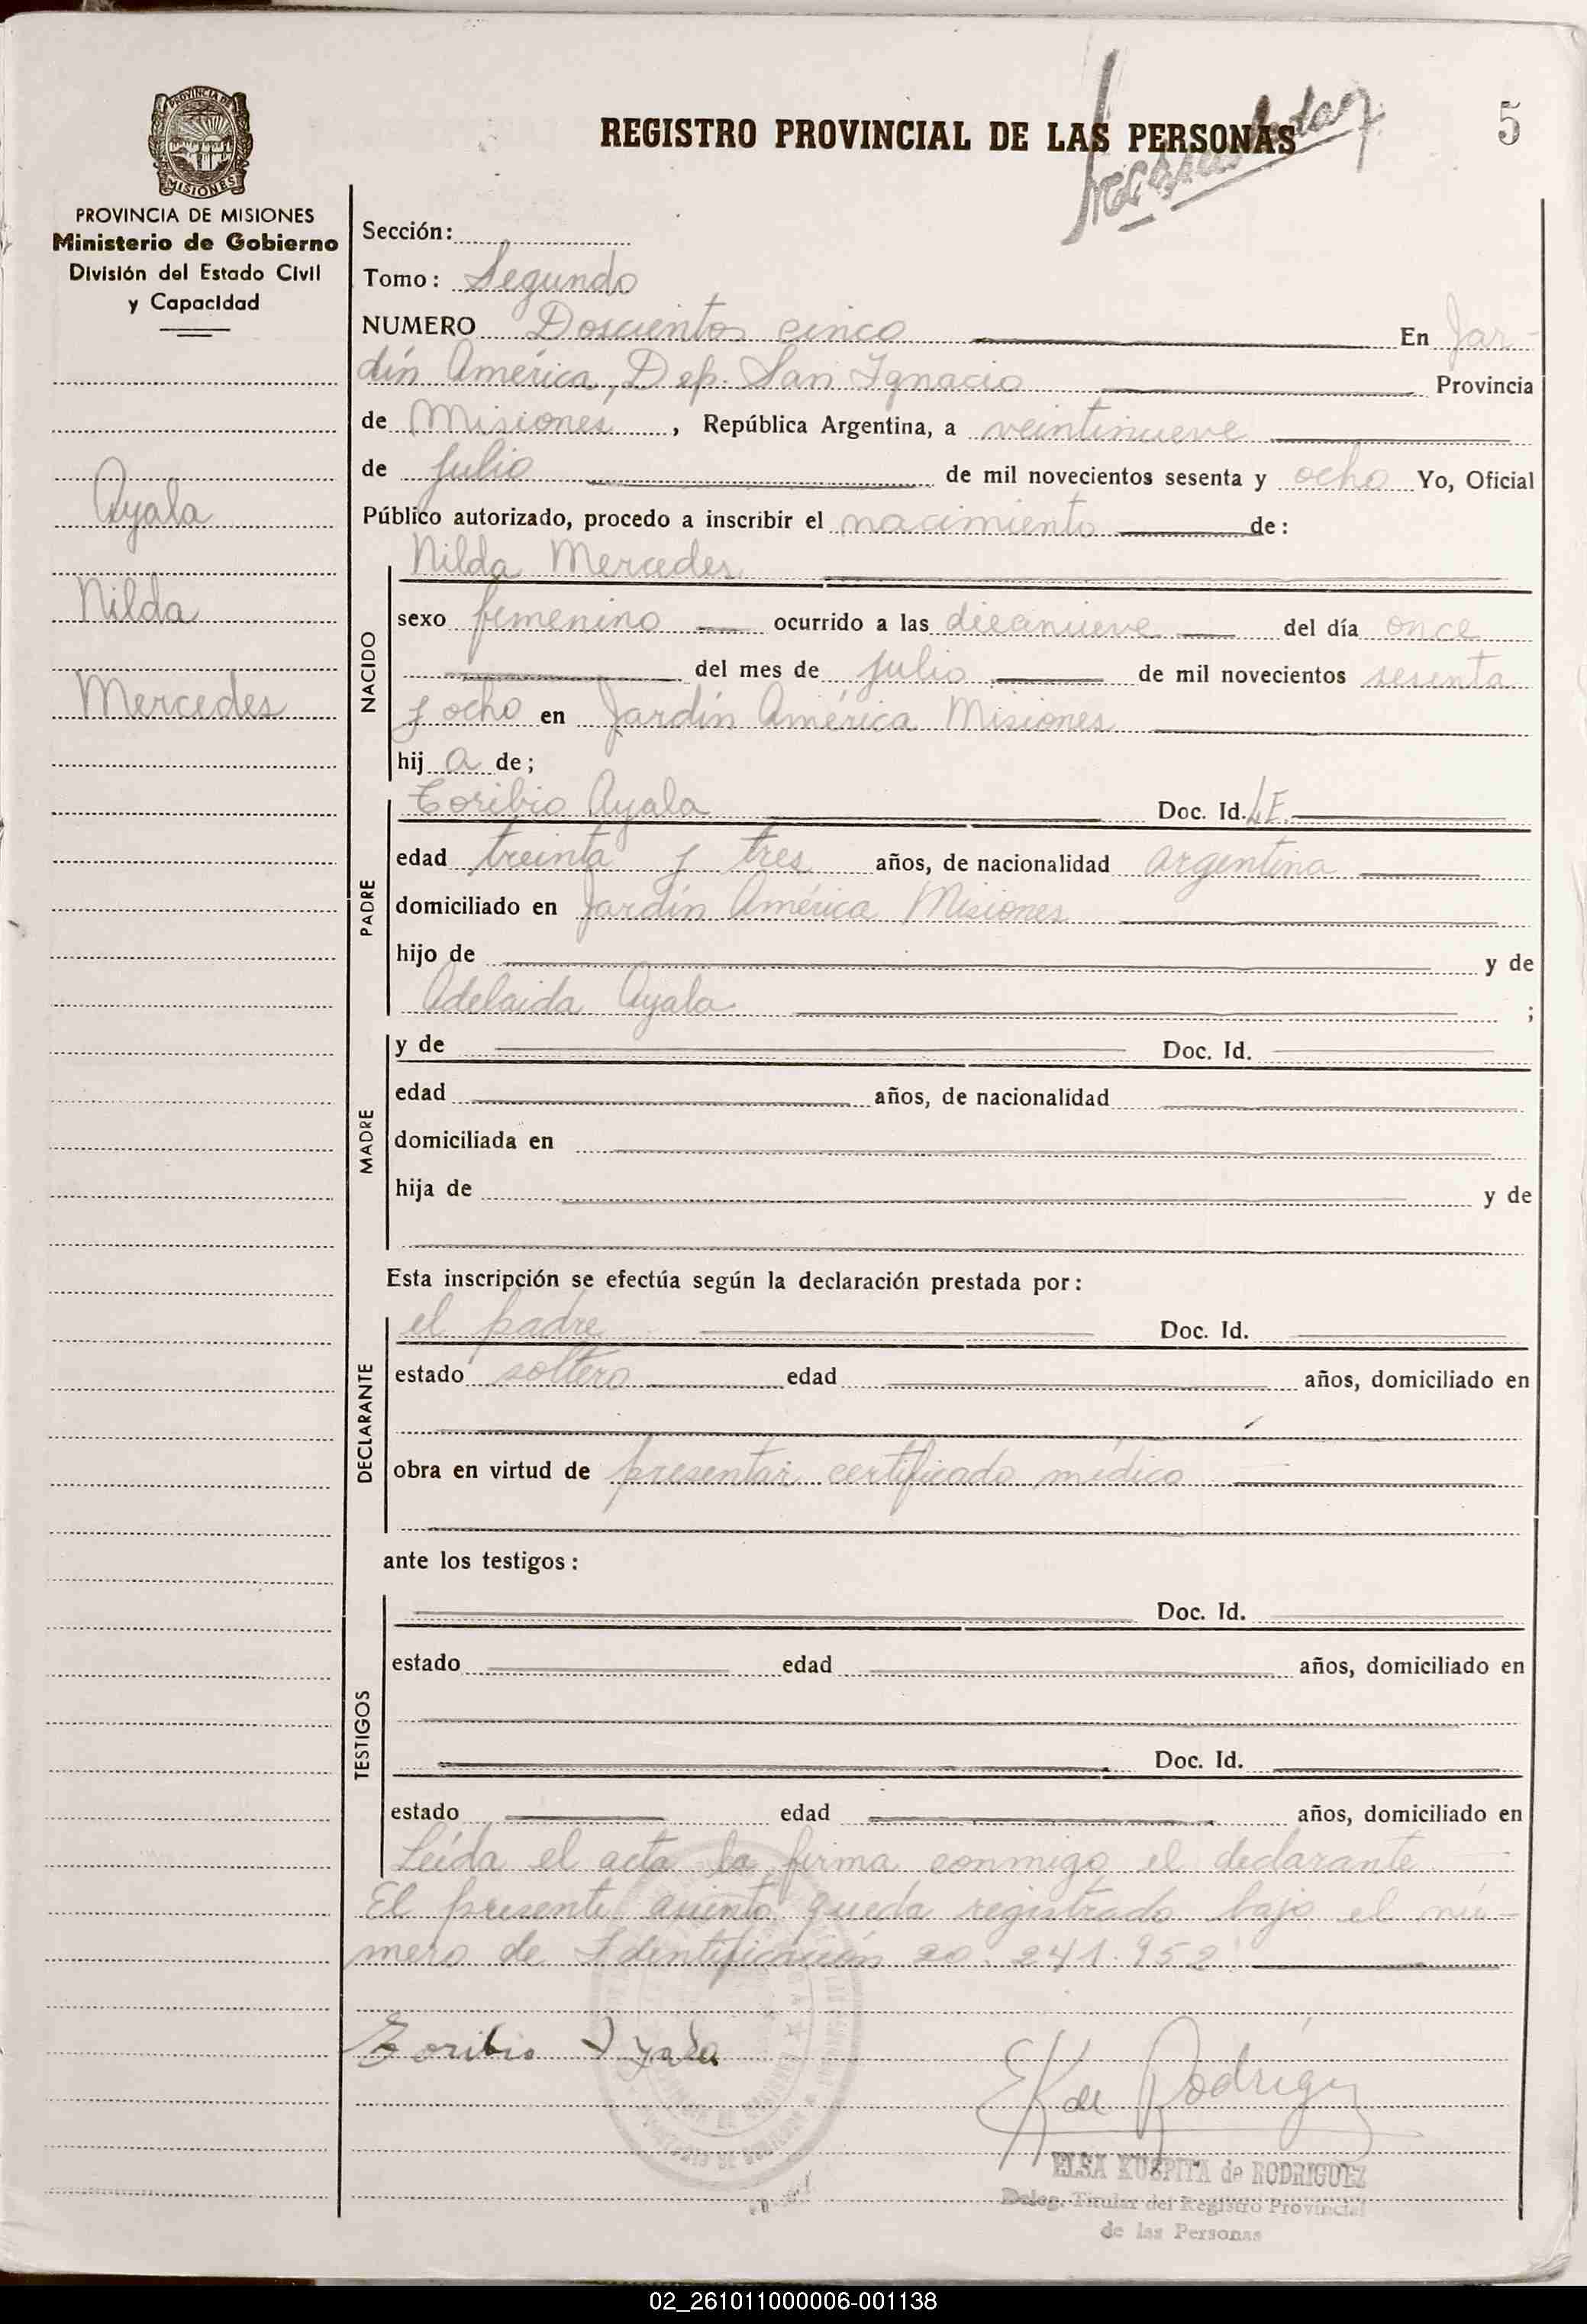 REGISTRO PROVINCIAL DE LAS PERSONAS
5
PROVINCIA DE MISIONES
PROVINCIA DE MISIONES
Ministerio de Gobierno
División del Estado Civil
y Capacidad
Ayala
Nilda
Mercedes
Sección:
Tomo: Segundo
NUMERO Doscientos cinco En Jar-
dín América, Dep. San Ignacio Provincia
de Misiones, República Argentina, a veintinueve
de julio de mil novecientos sesenta y ocho Yo, Oficial
Público autorizado, procedo a inscribir el nacimiento de:
NACIDO
Nilda Mercedes
sexo femenino ocurrido a las diecinueve del día once
del mes de julio de mil novecientos sesenta
y ocho en Jardín América Misiones
hij a de;
PADRE
Toribio Ayala Doc. Id. LE.
edad treinta y tres años, de nacionalidad argentina
domiciliado en Jardín América Misiones
hijo de y de
Adelaida Ayala ;
MADRE
y de Doc. Id.
edad años, de nacionalidad
domiciliada en
hija de y de
Esta inscripción se efectúa según la declaración prestada por:
DECLARANTE
el padre Doc. Id.
estado soltero edad años, domiciliado en
obra en virtud de presentar certificado médico
ante los testigos:
TESTIGOS
Doc. Id.
estado edad años, domiciliado en
Doc. Id.
estado edad años, domiciliado en
Leída el acta la firma conmigo el declarante
El presente asiento queda registrado bajo el nú-
mero de Identificación 20.241.952
Toribio Ayala
EK de Rodríguez
ELSA KUSPITA de RODRIGUEZ
Deleg. Titular del Registro Provincial
de las Personas
02_261011000006-001138